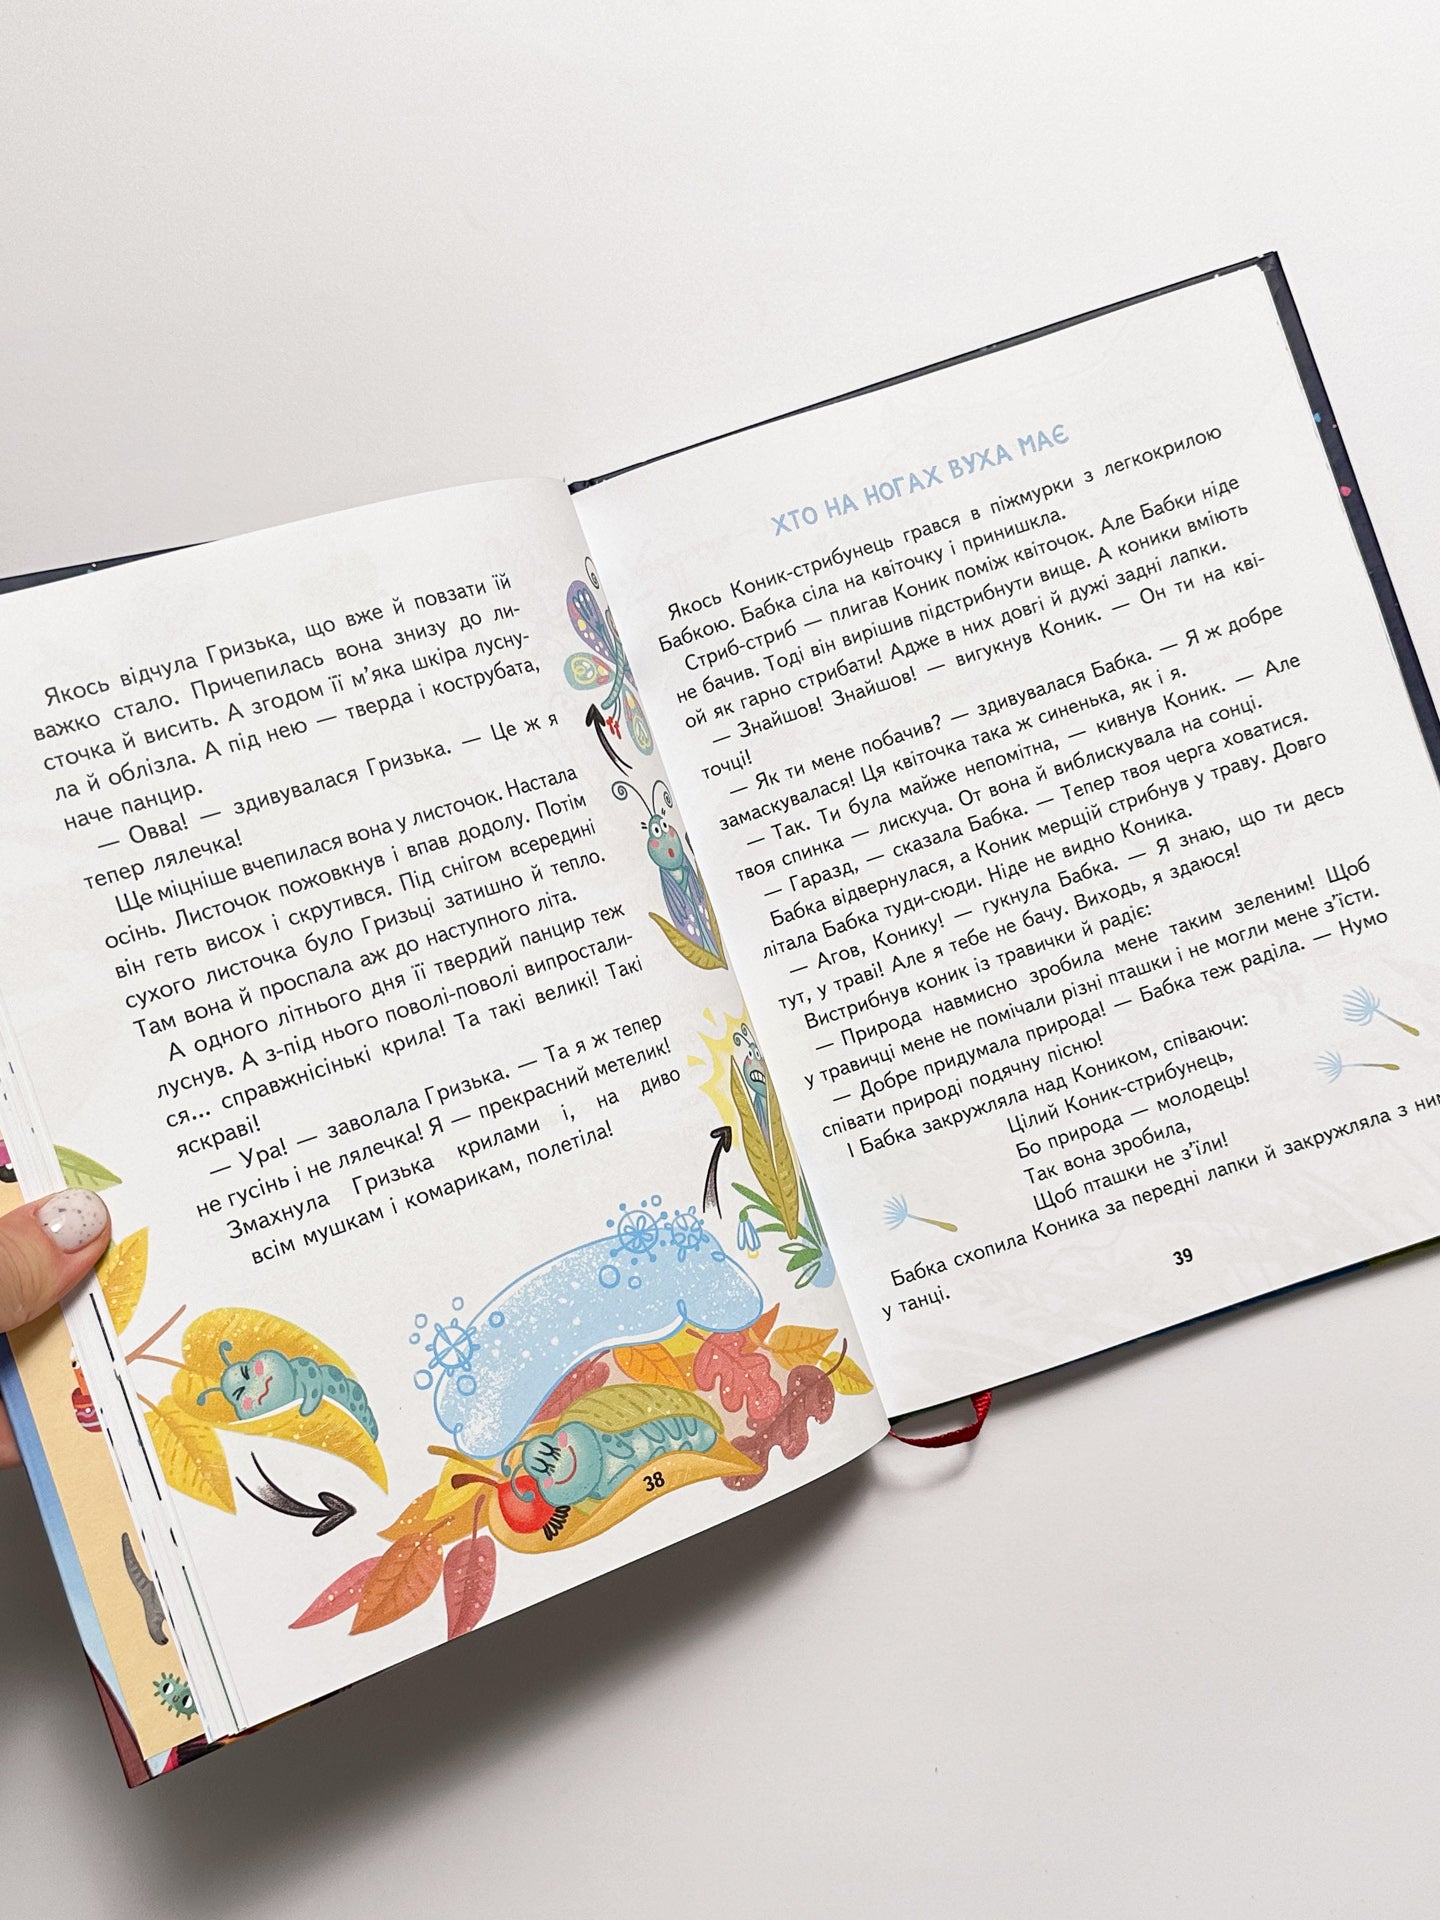 Якось відчула Гризька, що вже й повзати їй
важко стало. Причепилась вона знизу до ли-
сточка й висить. А згодом її м’яка шкіра лусну-
ла й облізла. А під нею — тверда і кострубата,
наче панцир.
— Овва! — здивувалася Гризька. — Це ж я
тепер лялечка!
Ще міцніше вчепилася вона у листочок. Настала
осінь. Листочок пожовкнув і впав додолу. Потім
він геть висох і скрутився. Під снігом всередині
сухого листочка було Гризьці затишно й тепло.
Там вона й проспала аж до наступного літа.
А одного літнього дня її твердий панцир теж
луснув. А з-під нього поволі-поволі випростали-
ся... справжнісінькі крила! Та такі великі! Такі
яскраві!
— Ура! — заволала Гризька. — Та я ж тепер
не гусінь і не лялечка! Я — прекрасний метелик!
Змахнула Гризька крилами і, на диво
всім мушкам і комарикам, полетіла!
38
ХТО НА НОГАХ ВУХА МАЄ
Якось Коник-стрибунець грався в піжмурки з легкокрилою
Бабкою. Бабка сіла на квіточку і принишкла.
Стриб-стриб — плигав Коник поміж квіточок. Але Бабки ніде
не бачив. Тоді він вирішив підстрибнути вище. А коники вміють
ой як гарно стрибати! Адже в них довгі й дужі задні лапки.
— Знайшов! Знайшов! — вигукнув Коник. — Он ти на кві-
точці!
— Як ти мене побачив? — здивувалася Бабка. — Я ж добре
замаскувалася! Ця квіточка така ж синенька, як і я.
— Так. Ти була майже непомітна, — кивнув Коник. — Але
твоя спинка — лискуча. От вона й виблискувала на сонці.
— Гаразд, — сказала Бабка. — Тепер твоя черга ховатися.
Бабка відвернулася, а Коник мерщій стрибнув у траву. Довго
літала Бабка туди-сюди. Ніде не видно Коника.
— Агов, Конику! — гукнула Бабка. — Я знаю, що ти десь
тут, у траві! Але я тебе не бачу. Виходь, я здаюся!
Вистрибнув коник із травички й радіє:
— Природа навмисно зробила мене таким зеленим! Щоб
у травичці мене не помічали різні пташки і не могли мене з’їсти.
— Добре придумала природа! — Бабка теж раділа. — Нумо
співати природі подячну пісню!
І Бабка закружляла над Коником, співаючи:
Цілий Коник-стрибунець,
Бо природа — молодець!
Так вона зробила,
Щоб пташки не з’їли!
Бабка схопила Коника за передні лапки й закружляла з ним
у танці.
39